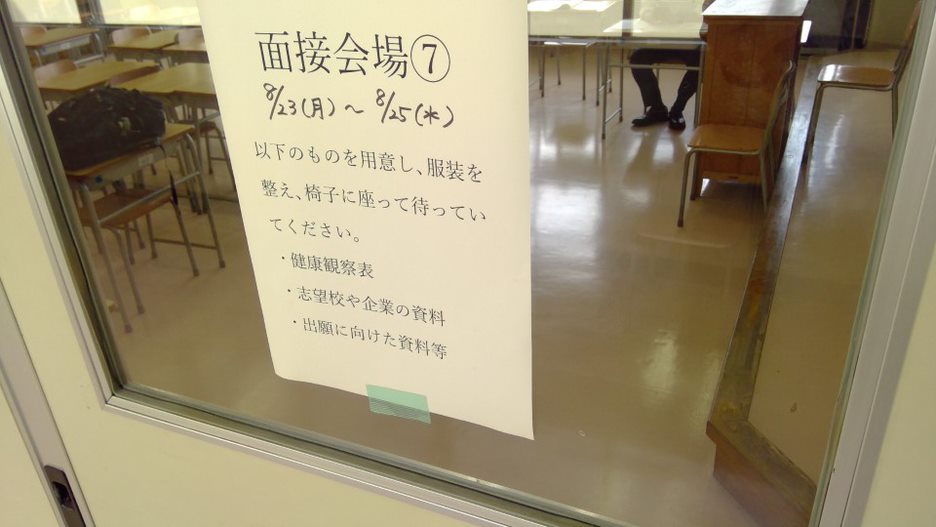 面接会場⑦
8/23(月)～8/25(水)
以下のものを用意し、服装を
整え、椅子に座って待ってい
てください。
・健康観察表
・志望校や企業の資料
・出願に向けた資料等